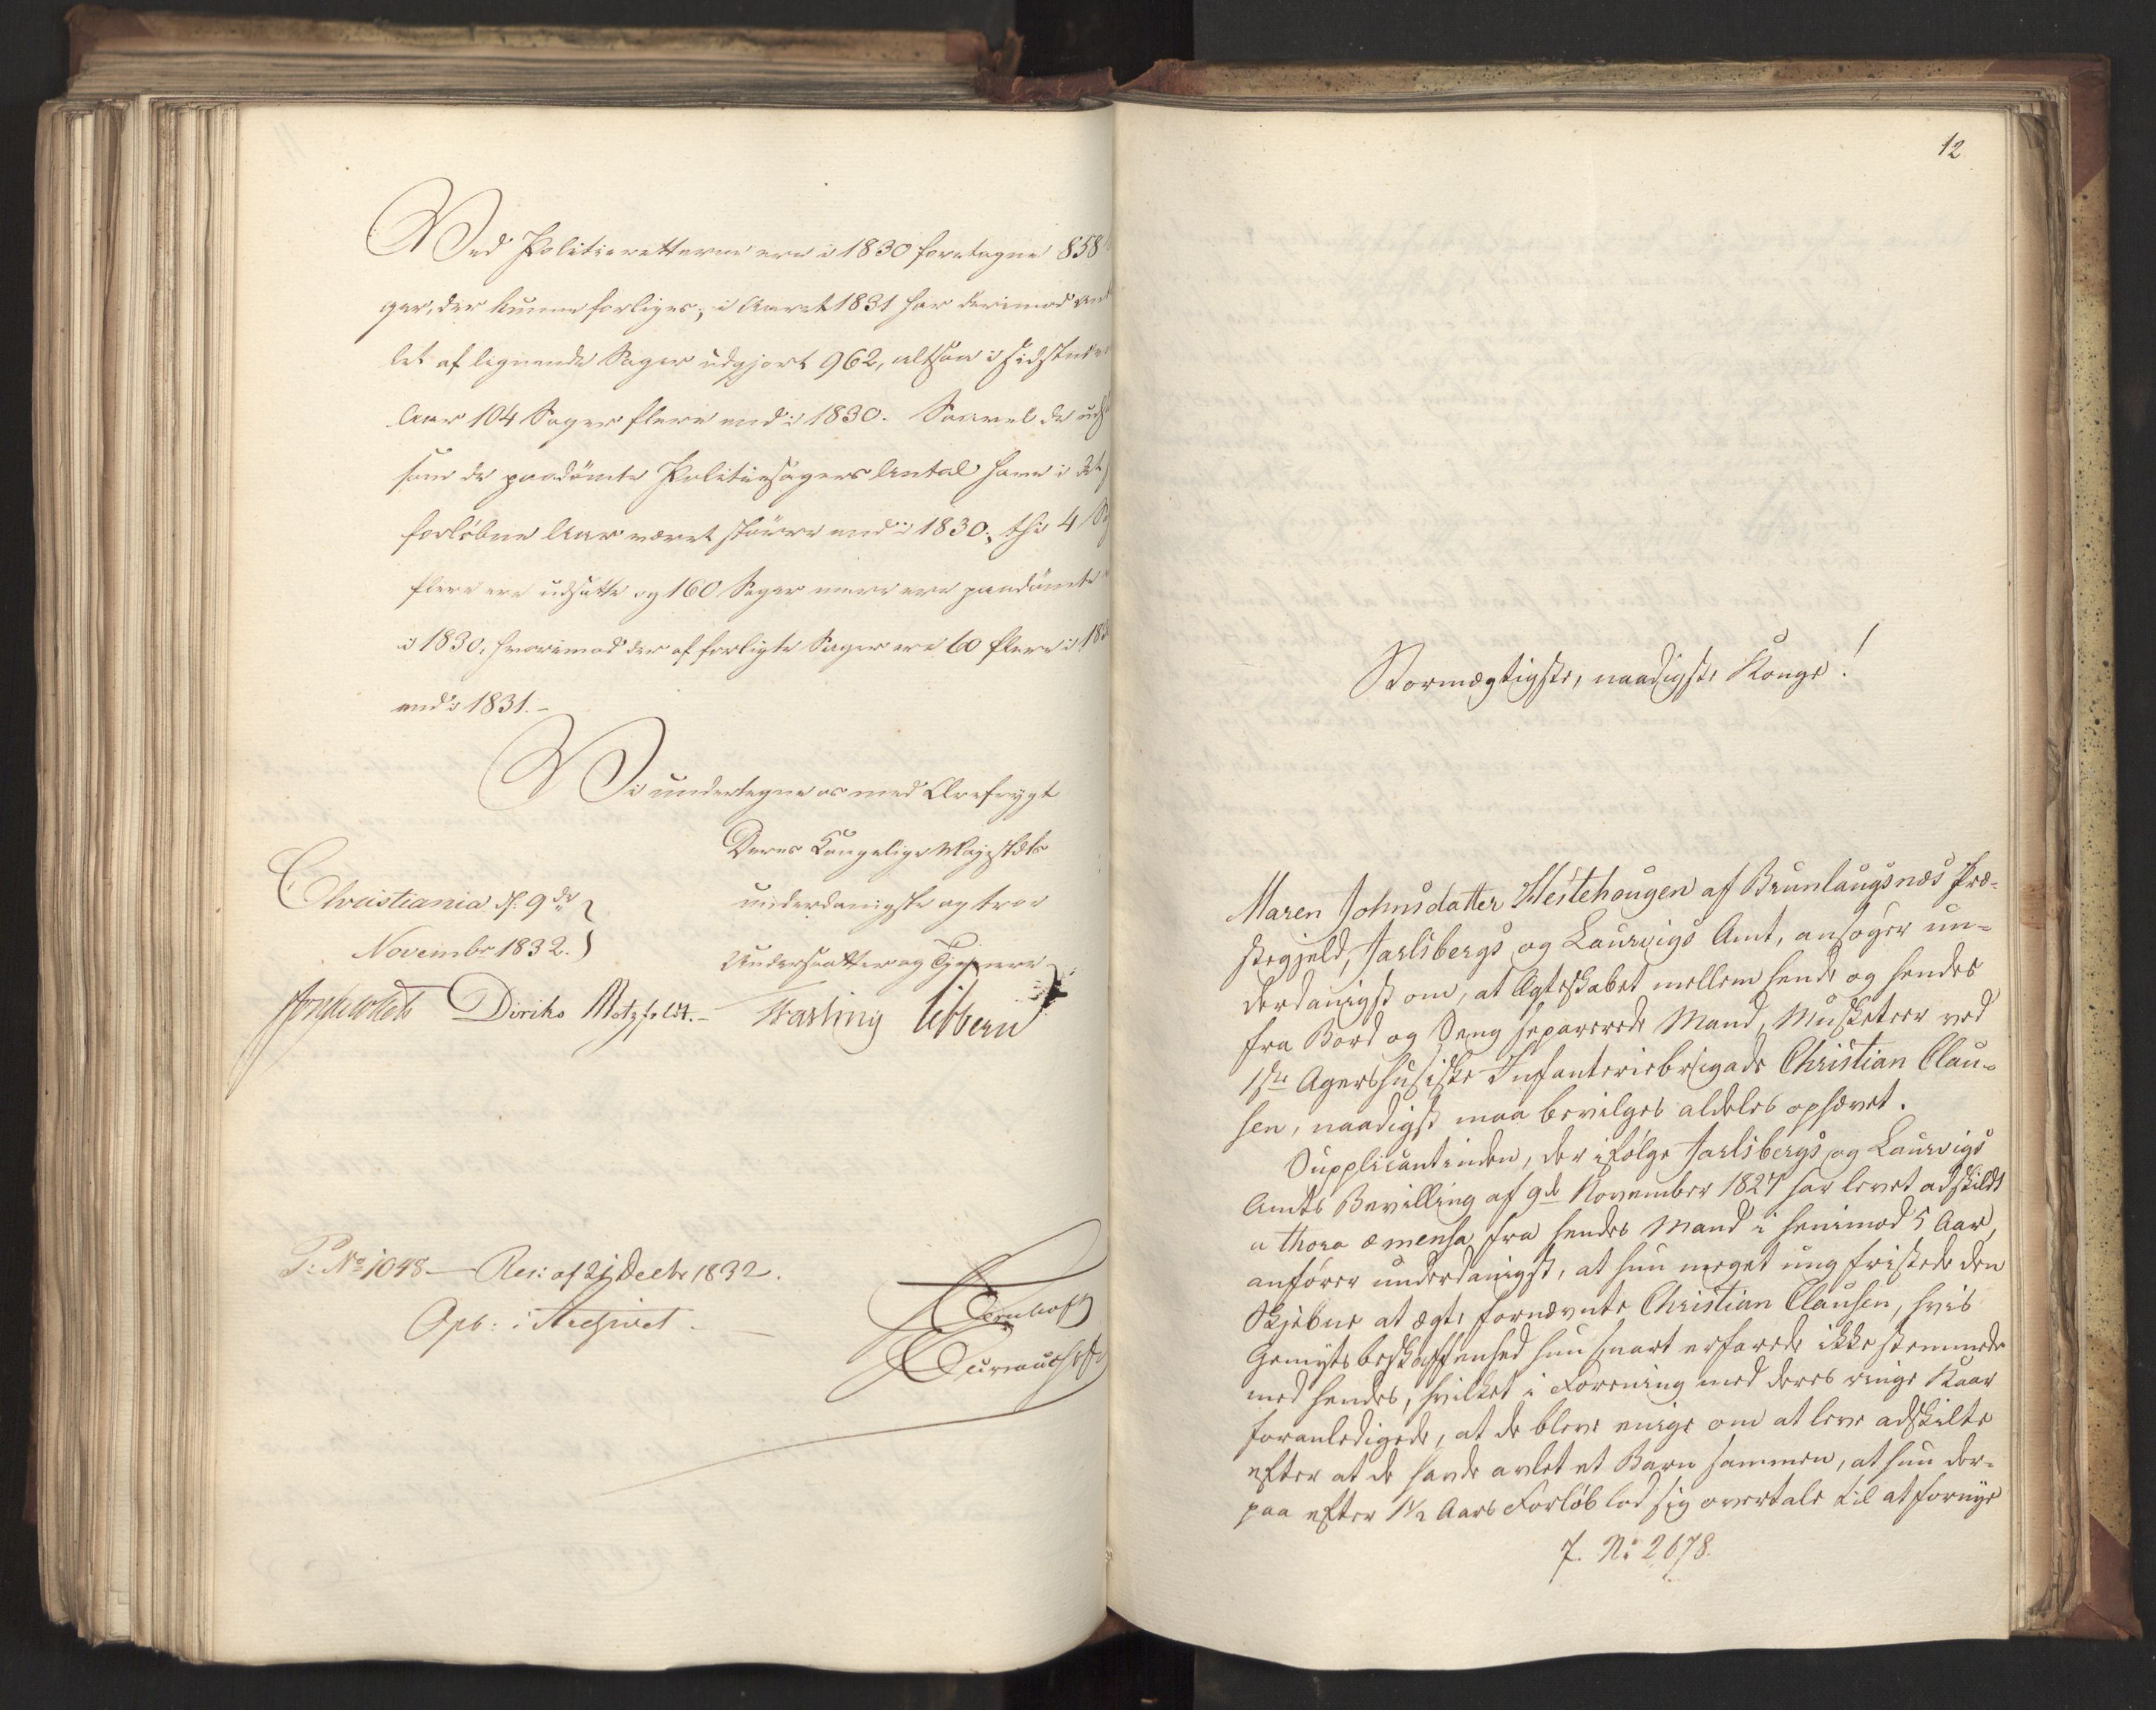 Ved Politieretterne ere i 1830 foretagne 858
ger, der kunne forliges; i Aaret 1831 har derimod
let af lignende Sager udgjort 962, altsaa i sidstnævnte
Aar 104 Sager flere end i 1830. Saavel de
som de paadømte Politiesagers Antal have i det
forløbne Aar været større end i 1830; thi 4
flere ere udsatte og 160 Sager mere ere paadømte
i 1830, hvorimod der af forligte Sager ere 60 flere i
end i 1831.-
Vi undertegne os med Ærefrygt
Deres Kongelige Majestæts
underdanigste og troe
Undersaatter og Tjenere
Christiania d. 9de
Novembr 1832.
Diriks Motzfeldt.- Fasting Sibbern
P: No 1048. — Res: af 21 Decbr 1832.
Opb: i Archivet. —
12
Stormægtigste, naadigste Konge!
Maren Johnsdatter Hestehougen af Brunlaugsnæs Præ-
stegjeld, Jarlsbergs og Laurvigs Amt, ansøger un-
derdanigst om, at Ægteskabet mellem hende og hendes
fra Bord og Seng separerede Mand, Musketeer ved
1ste Agershusiske Infanteriebrigade Christian Clau-
sen, naadigst maa bevilges aldeles ophævet.
Supplicantinden, der ifølge Jarlsbergs og Laurvigs
Amts Bevilling af 9de November 1827 har levet adskildt
a thoro & mensa fra hendes Mand i henimod 5 Aar,
anfører underdanigst, at hun meget ung fristede den
Skjebne at ægte fornævnte Christian Clausen, hvis
Gemytsbeskaffenhed hun snart erfarede ikke stemmede
med hendes, hvilket i Forening med deres ringe Kaar
foranledigede, at de bleve enige om at leve adskilte
efter at de havde avlet et Barn sammen, at hun der-
paa efter 1½ Aars Forløb lod sig overtale til at fornye
J. No 2678.